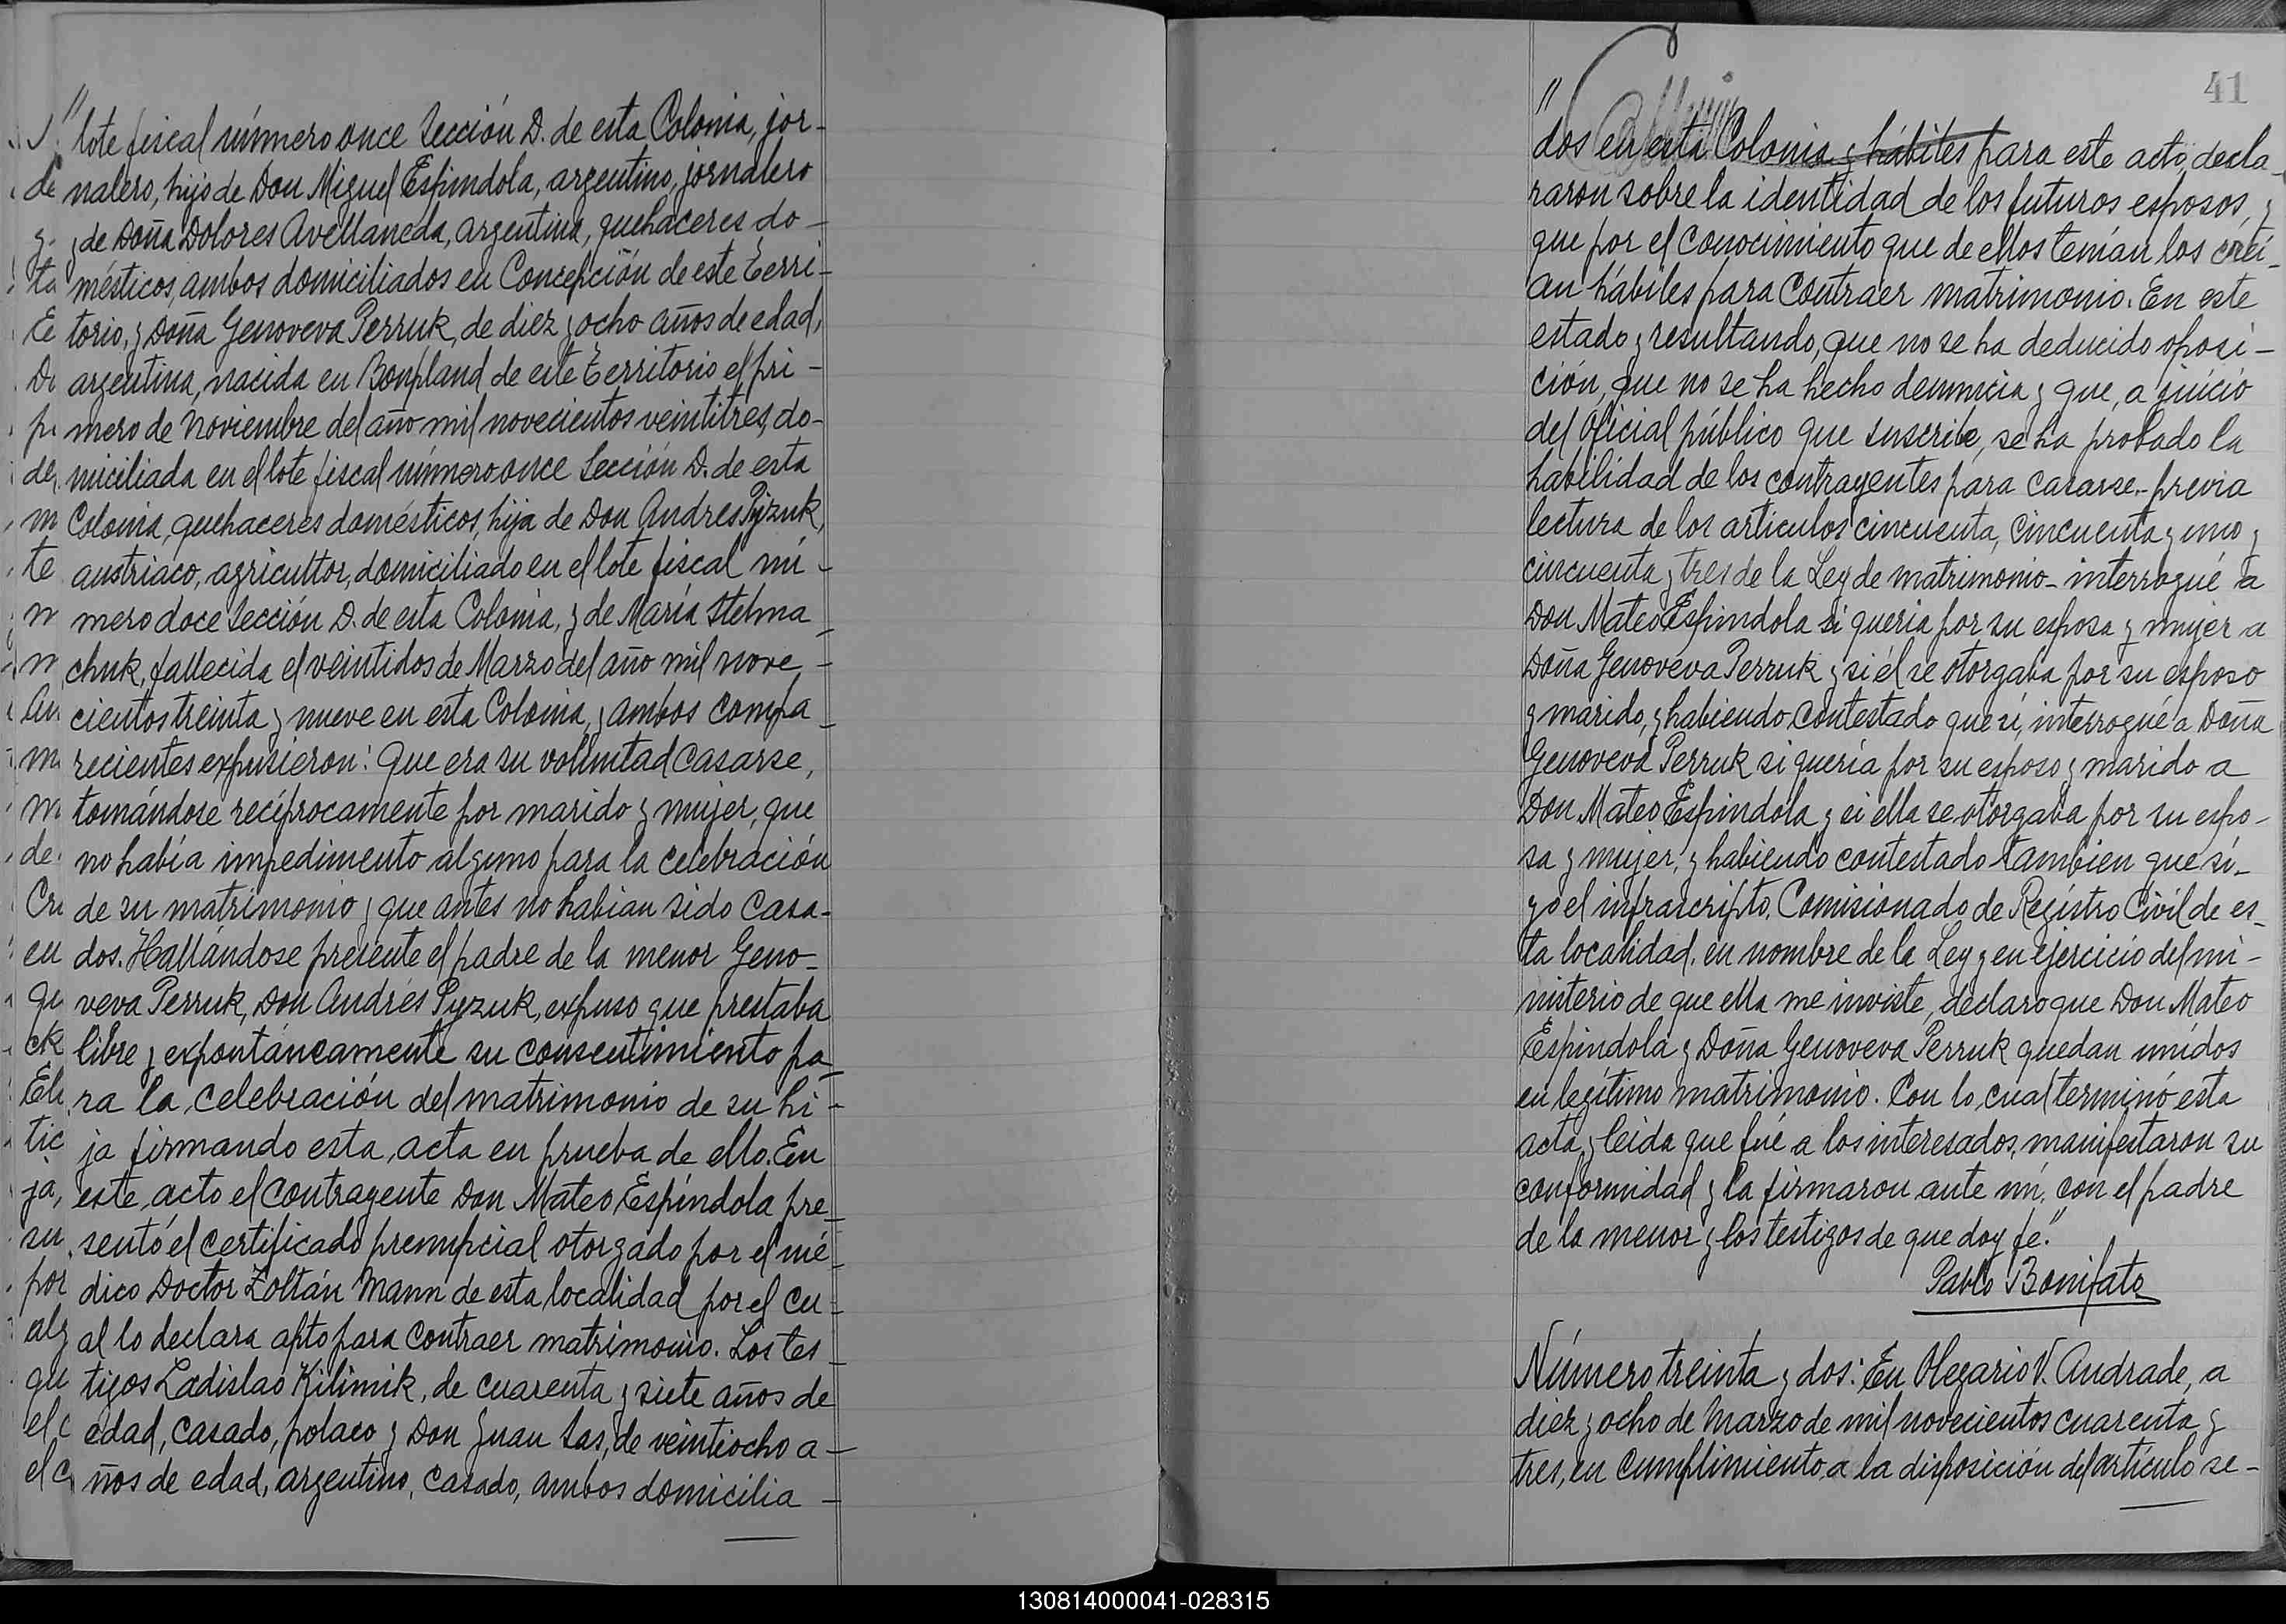 "lote fiscal número once Sección D. de esta Colonia, jor-
nalero, hijo de Don Miguel Espindola, argentino, jornalero
y de Doña Dolores Avellaneda, argentina, quehaceres do-
mésticos, ambos domiciliados en Concepción de este Terri-
torio, y Doña Genoveva Perruk, de diez y ocho años de edad,
argentina, nacida en Bonpland de este Territorio el pri-
mero de Noviembre del año mil novecientos veintitres, do-
miciliada en el lote fiscal número once Sección D. de esta
Colonia, quehaceres domésticos, hija de Don Andres Pyzuk,
austriaco, agricultor, domiciliado en el lote fiscal nú-
mero doce Sección D. de esta Colonia, y de María Stelma-
chuk, fallecida el veintidos de Marzo del año mil nove-
cientos treinta y nueve en esta Colonia, y ambos compa-
recientes expusieron: Que era su voluntad casarse,
tomándose recíprocamente por marido y mujer, que
no había impedimento alguno para la celebración
de su matrimonio y que antes no habian sido casa-
dos. Hallándose presente el padre de la menor Geno-
veva Perruk, Don Andrés Pyzuk, expuso que prestaba
libre y expontáneamente su consentimiento pa-
ra la celebración del matrimonio de su hi-
ja firmando esta acta en prueba de ello. En
este acto el contrayente Don Mateo Espíndola pre-
sentó el certificado prenupcial otorgado por el mé-
dico Doctor Zoltán Mann de esta localidad por el cu-
al lo declara apto para contraer matrimonio. Los tes-
tigos Ladislao Kilimik, de cuarenta y siete años de
edad, casado, polaco y Don Juan Sas, de veintiocho a-
ños de edad, argentino, casado, ambos domicilia-
41
"dos en esta Colonia y hábiles para este acto, decla-
raron sobre la identidad de los futuros esposos, y
que por el conocimiento que de ellos tenían los creí-
an hábiles para contraer matrimonio. En este
estado y resultando, que no se ha deducido oposi-
ción, que no se ha hecho denuncia y que, a juicio
del Oficial público que suscribe, se ha probado la
habilidad de los contrayentes para casarse.- previa
lectura de los articulos cincuenta, cincuenta y uno y
cincuenta y tres de la Ley de matrimonio- interrogué a
Don Mateo Espindola si queria por su esposa y mujer a
Doña Genoveva Perruk y si él se otorgaba por su esposo
y marido, y habiendo contestado que sí, interrogué a Doña
Genoveva Perruk si quería por su esposo y marido a
Don Mateo Espindola y si ella se otorgaba por su espo-
sa y mujer, y habiendo contestado tambien que sí-
yo el infrascripto, Comisionado de Registro Civil de es-
ta localidad, en nombre de la Ley y en ejercicio del mi-
nisterio de que ella me inviste, declaro que Don Mateo
Espindola y Doña Genoveva Perruk quedan unidos
en legítimo matrimonio. Con lo cual terminó esta
acta, y leida que fué a los interesados, manifestaron su
conformidad y la firmaron ante mí, con el padre
de la menor y los testigos de que doy fe."
Pablo Bonifato
Número treinta y dos: En Olegario V. Andrade, a
diez y ocho de Marzo de mil novecientos cuarenta y
tres, en cumplimiento a la disposición del artículo se-
130814000041-028315